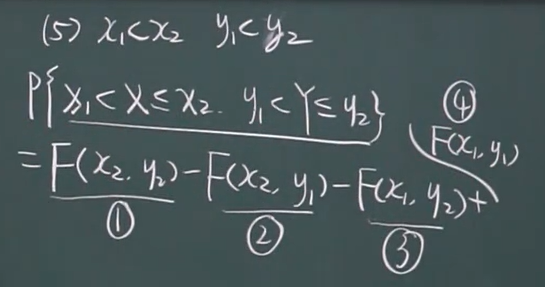 (5) x₁<x₂ y₁<y₂
P{x₁<X≤x₂. y₁<Y≤y₂}
=F(x₂. y₂)-F(x₂, y₁)-F(x₁, y₂)+ F(x₁, y₁)
① ② ③ ④